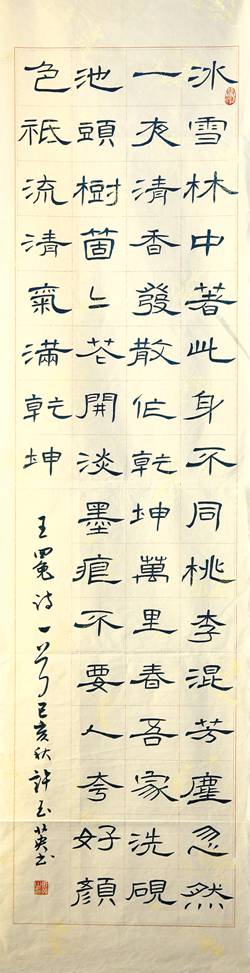 冰雪林中著此身不同桃李混芳塵忽然
一夜清香發散作乾坤萬里春吾家洗硯
池頭樹箇〻花開淡墨痕不要人夸好顏
色祗流清氣滿乾坤
王冕诗一首己亥秋許玉英书